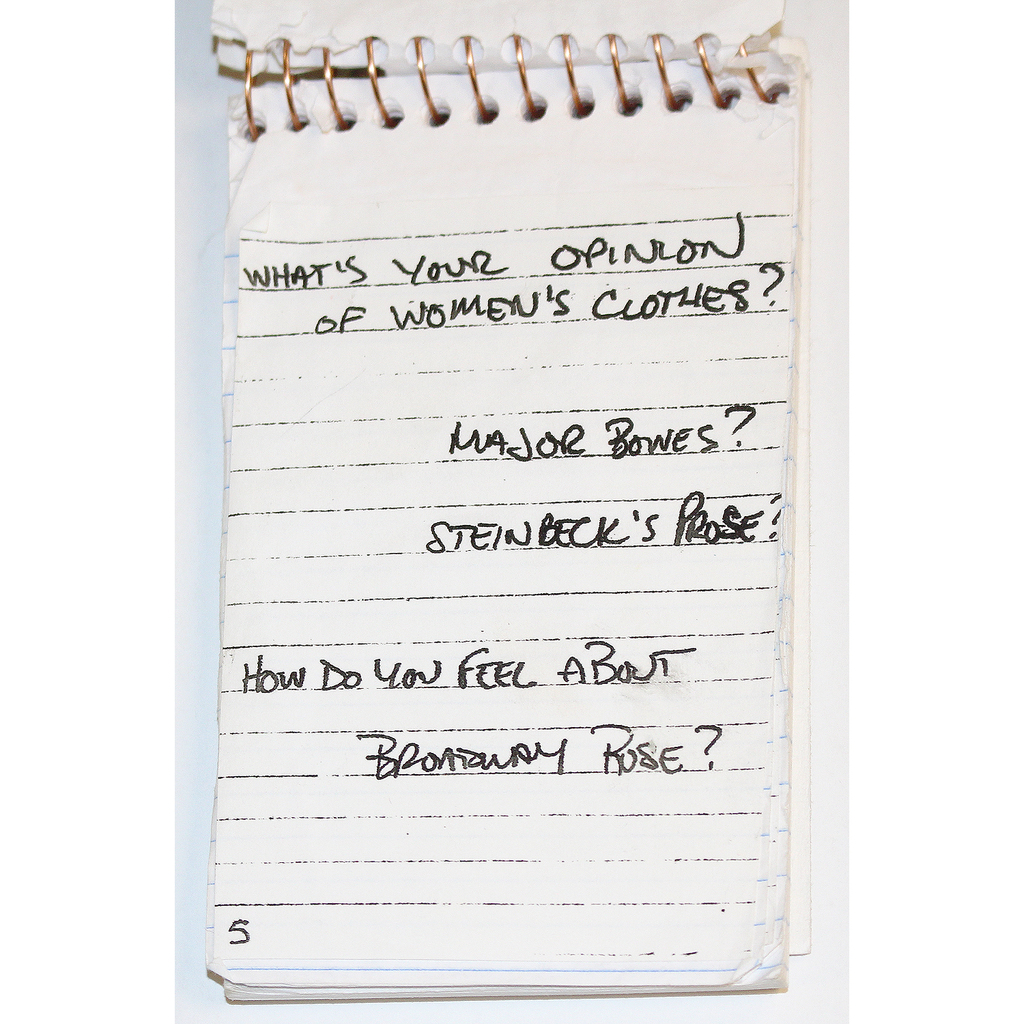 WHAT'S YOUR OPINION
OF WOMEN'S CLOTHES?
MAJOR BOWES?
STEINBECK'S PROSE?
HOW DO YOU FEEL ABOUT
BROADWAY ROSE?
5